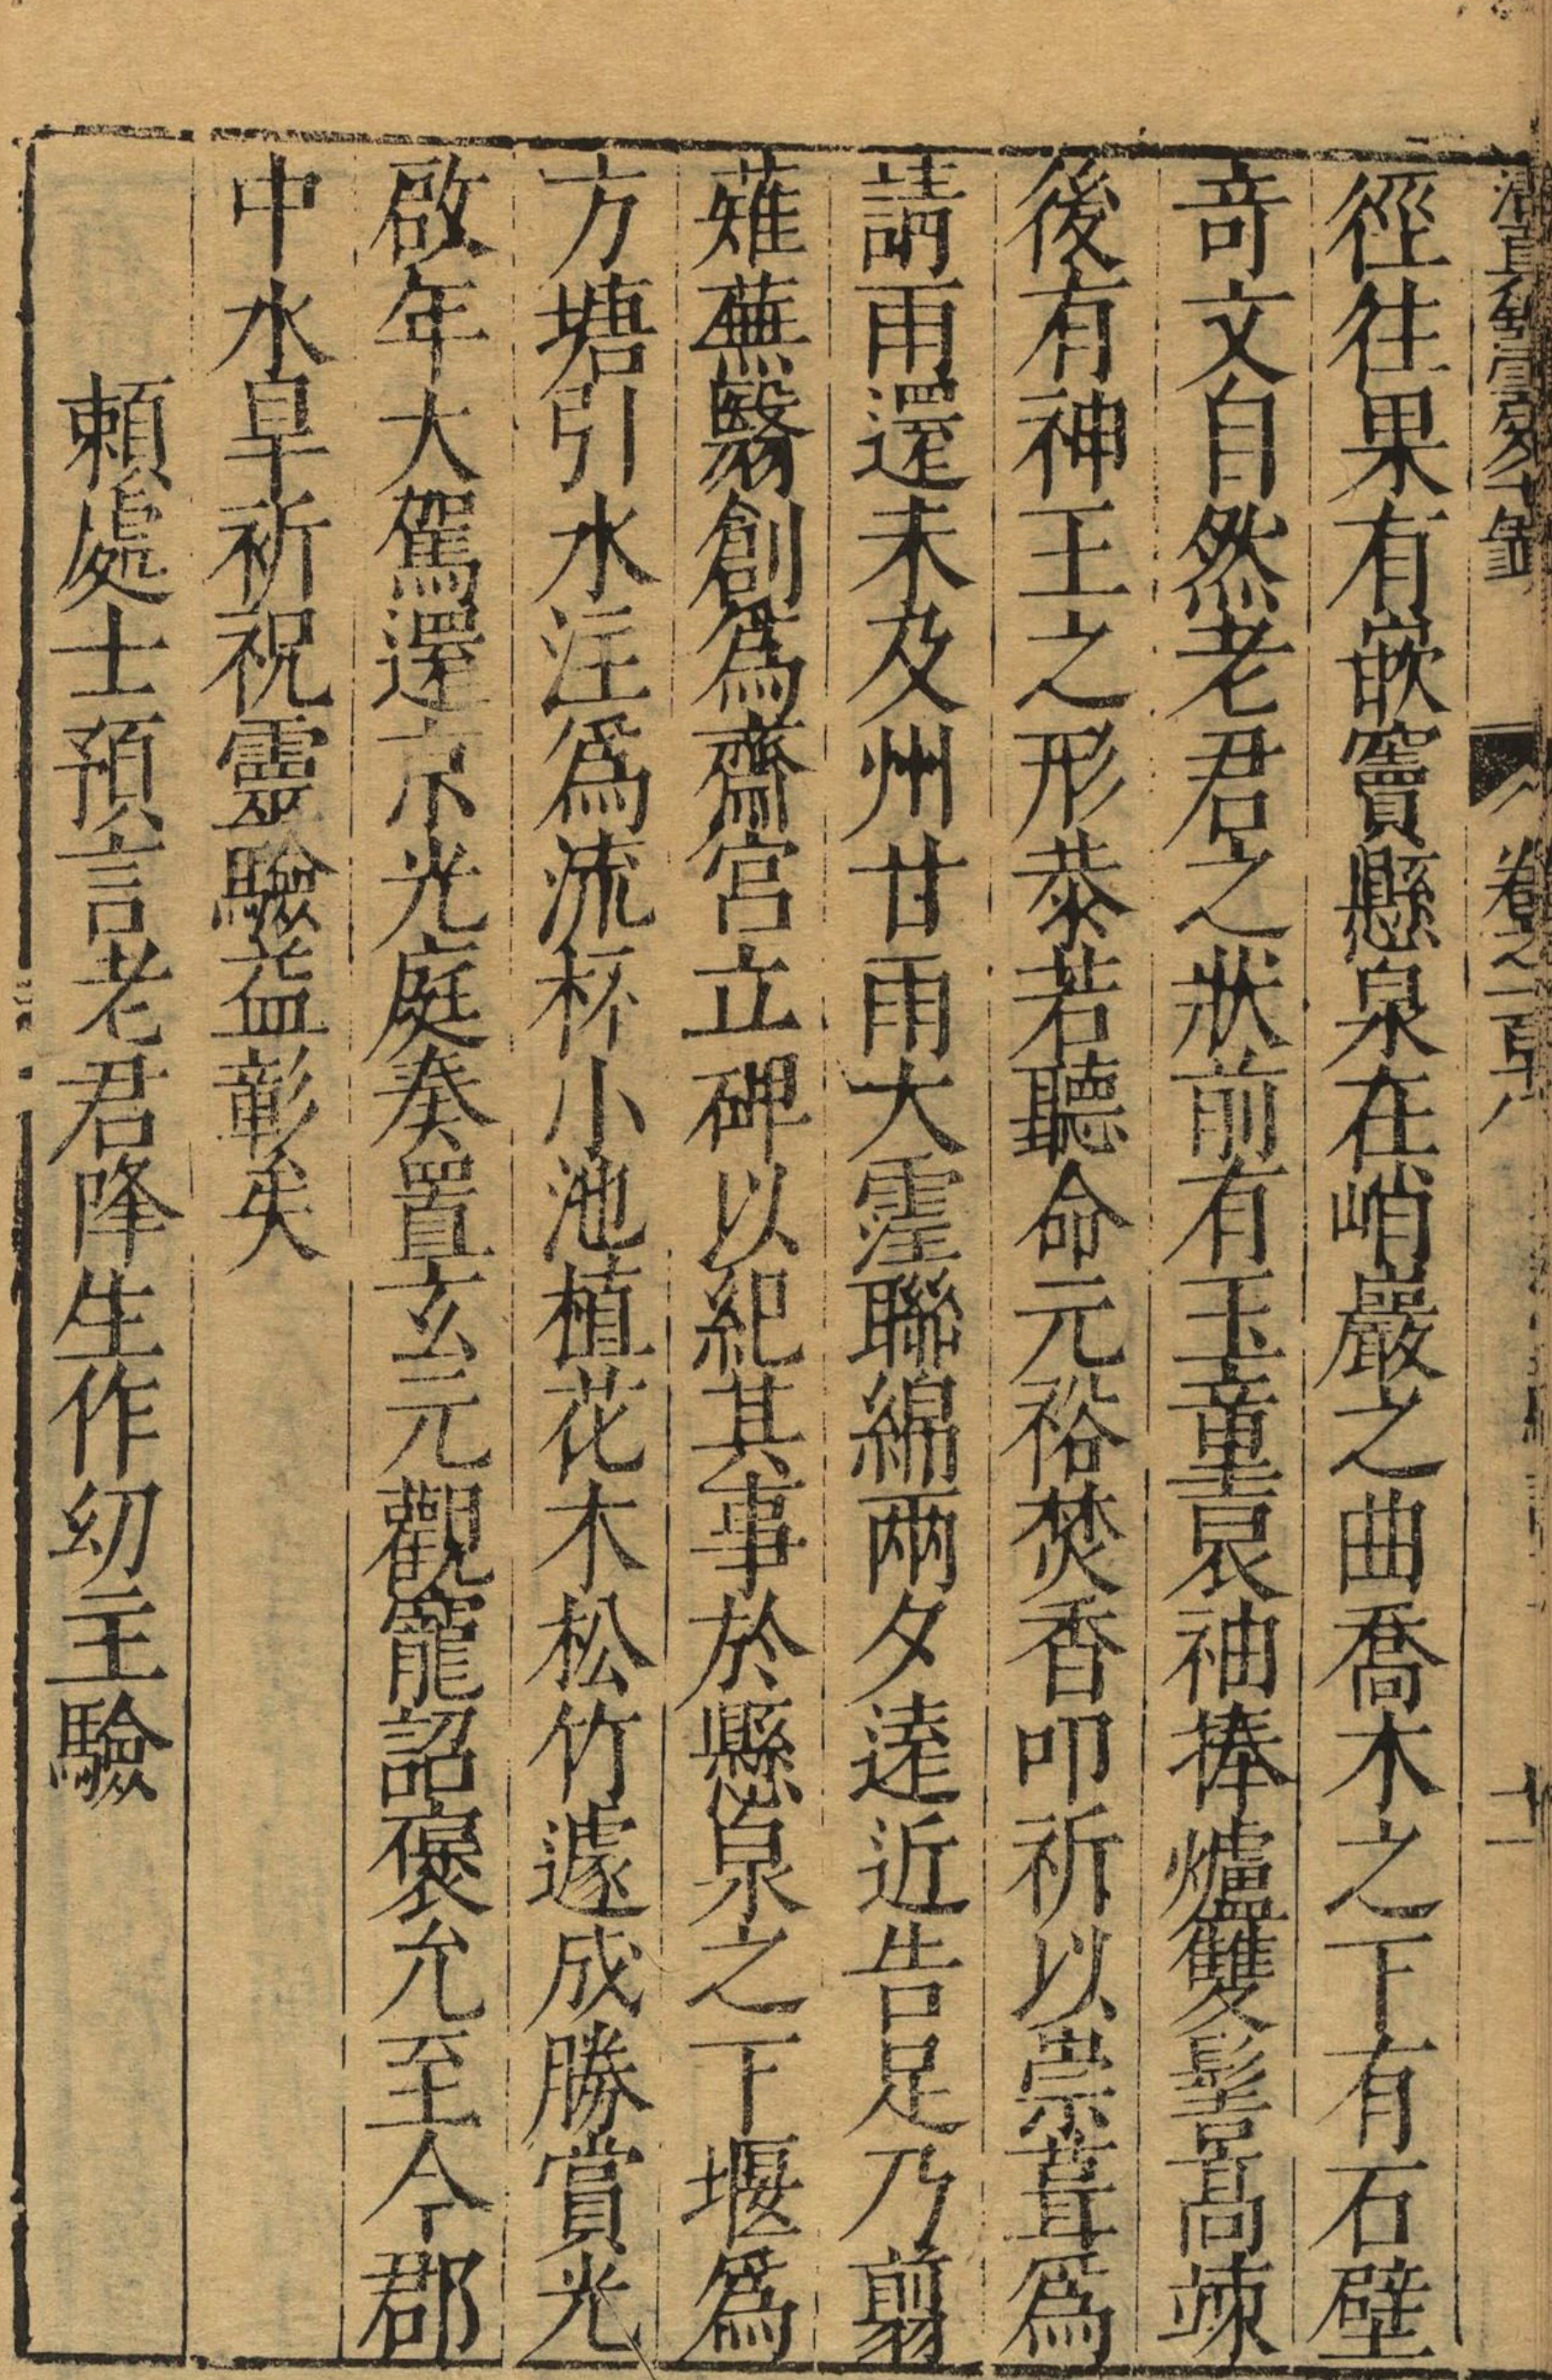 卷之一
十一
徑往果有嵌竇懸泉在峭巖之曲喬木之下有石壁
竒文自然老君之狀前有玉童袞袖捧爐雙髻高竦
後有神王之形恭若聽命元裕焚香叩祈以崇葺爲
請雨還未及州甘雨大霔聯綿兩夕逺近告足乃翦
薙蕪翳創爲齋宮立碑以紀其事於懸泉之下堰爲
方塘引水注爲流杯小池植花木松竹遽成勝賞光
啟年大駕還京光庭奏置玄元觀寵詔褒允至今郡
中水旱祈祝靈驗益彰矣
頼處士預言老君降生作㓜主驗